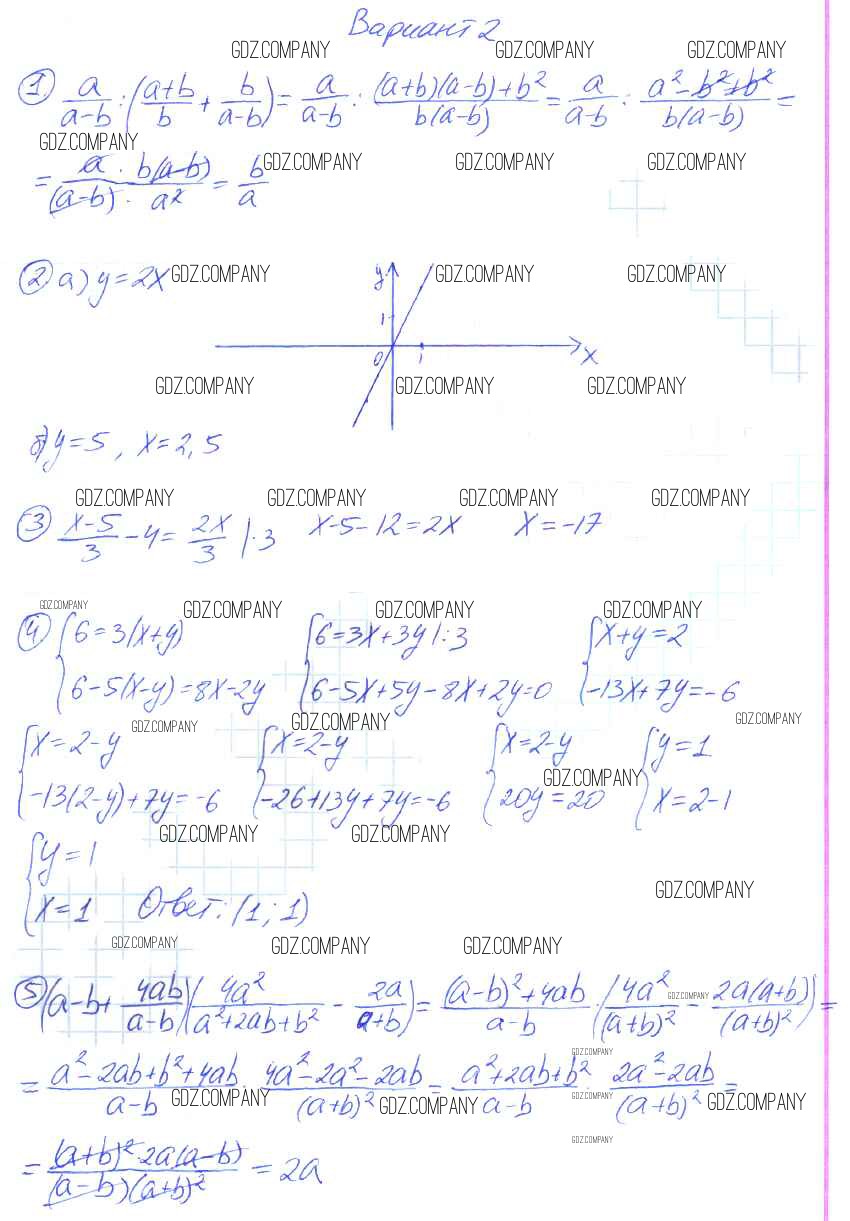 Вариант 2
GDZ.COMPANY GDZ.COMPANY GDZ.COMPANY
① a/(a-b) : ((a+b)/b + b/(a-b)) = a/(a-b) : ((a+b)(a-b)+b²)/(b(a-b)) = a/(a-b) : (a²-b²+b²)/(b(a-b)) =
GDZ.COMPANY
= (a · b(a-b))/((a-b) · a²) = b/a
GDZ.COMPANY GDZ.COMPANY GDZ.COMPANY
② а) y=2x
GDZ.COMPANY GDZ.COMPANY GDZ.COMPANY
y
1
0 1 x
GDZ.COMPANY GDZ.COMPANY GDZ.COMPANY
б) y=5, x=2,5
GDZ.COMPANY GDZ.COMPANY GDZ.COMPANY GDZ.COMPANY
③ (x-5)/3 - 4 = 2x/3 |·3 x-5-12=2x x=-17
GDZ.COMPANY GDZ.COMPANY GDZ.COMPANY GDZ.COMPANY
④ {6=3(x+y) {6=3x+3y |:3 {x+y=2
6-5(x-y)=8x-2y 6-5x+5y-8x+2y=0 -13x+7y=-6
GDZ.COMPANY GDZ.COMPANY GDZ.COMPANY
{x=2-y {x=2-y {x=2-y {y=1
GDZ.COMPANY
-13(2-y)+7y=-6 -26+13y+7y=-6 20y=20 x=2-1
GDZ.COMPANY GDZ.COMPANY
{y=1
GDZ.COMPANY
x=1 Ответ: (1; 1)
GDZ.COMPANY GDZ.COMPANY GDZ.COMPANY
⑤ (a-b+ 4ab/(a-b))(4a²/(a²+2ab+b²) - 2a/(a+b)) = ((a-b)²+4ab)/(a-b) · (4a²/(a+b)² - 2a(a+b)/(a+b)²) =
GDZ.COMPANY
GDZ.COMPANY
= (a²-2ab+b²+4ab)/(a-b) · (4a²-2a²-2ab)/(a+b)² = (a²+2ab+b²)/(a-b) · (2a²-2ab)/(a+b)² =
GDZ.COMPANY GDZ.COMPANY GDZ.COMPANY GDZ.COMPANY
GDZ.COMPANY
= ((a+b)² · 2a(a-b))/((a-b)(a+b)²) = 2a